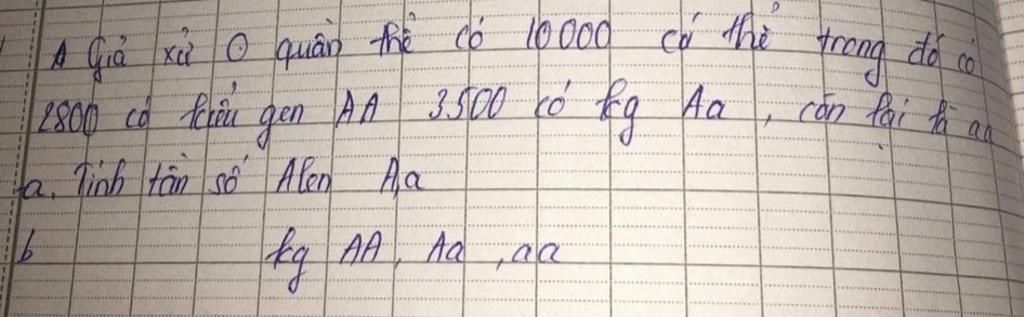 Giả xử 1 quần thể có 10000 cá thể trong đó có
2800 có kiểu gen AA 3500 có kg Aa, còn lại là aa
a. Tính tần số Alen A,a
b kg AA, Aa, aa